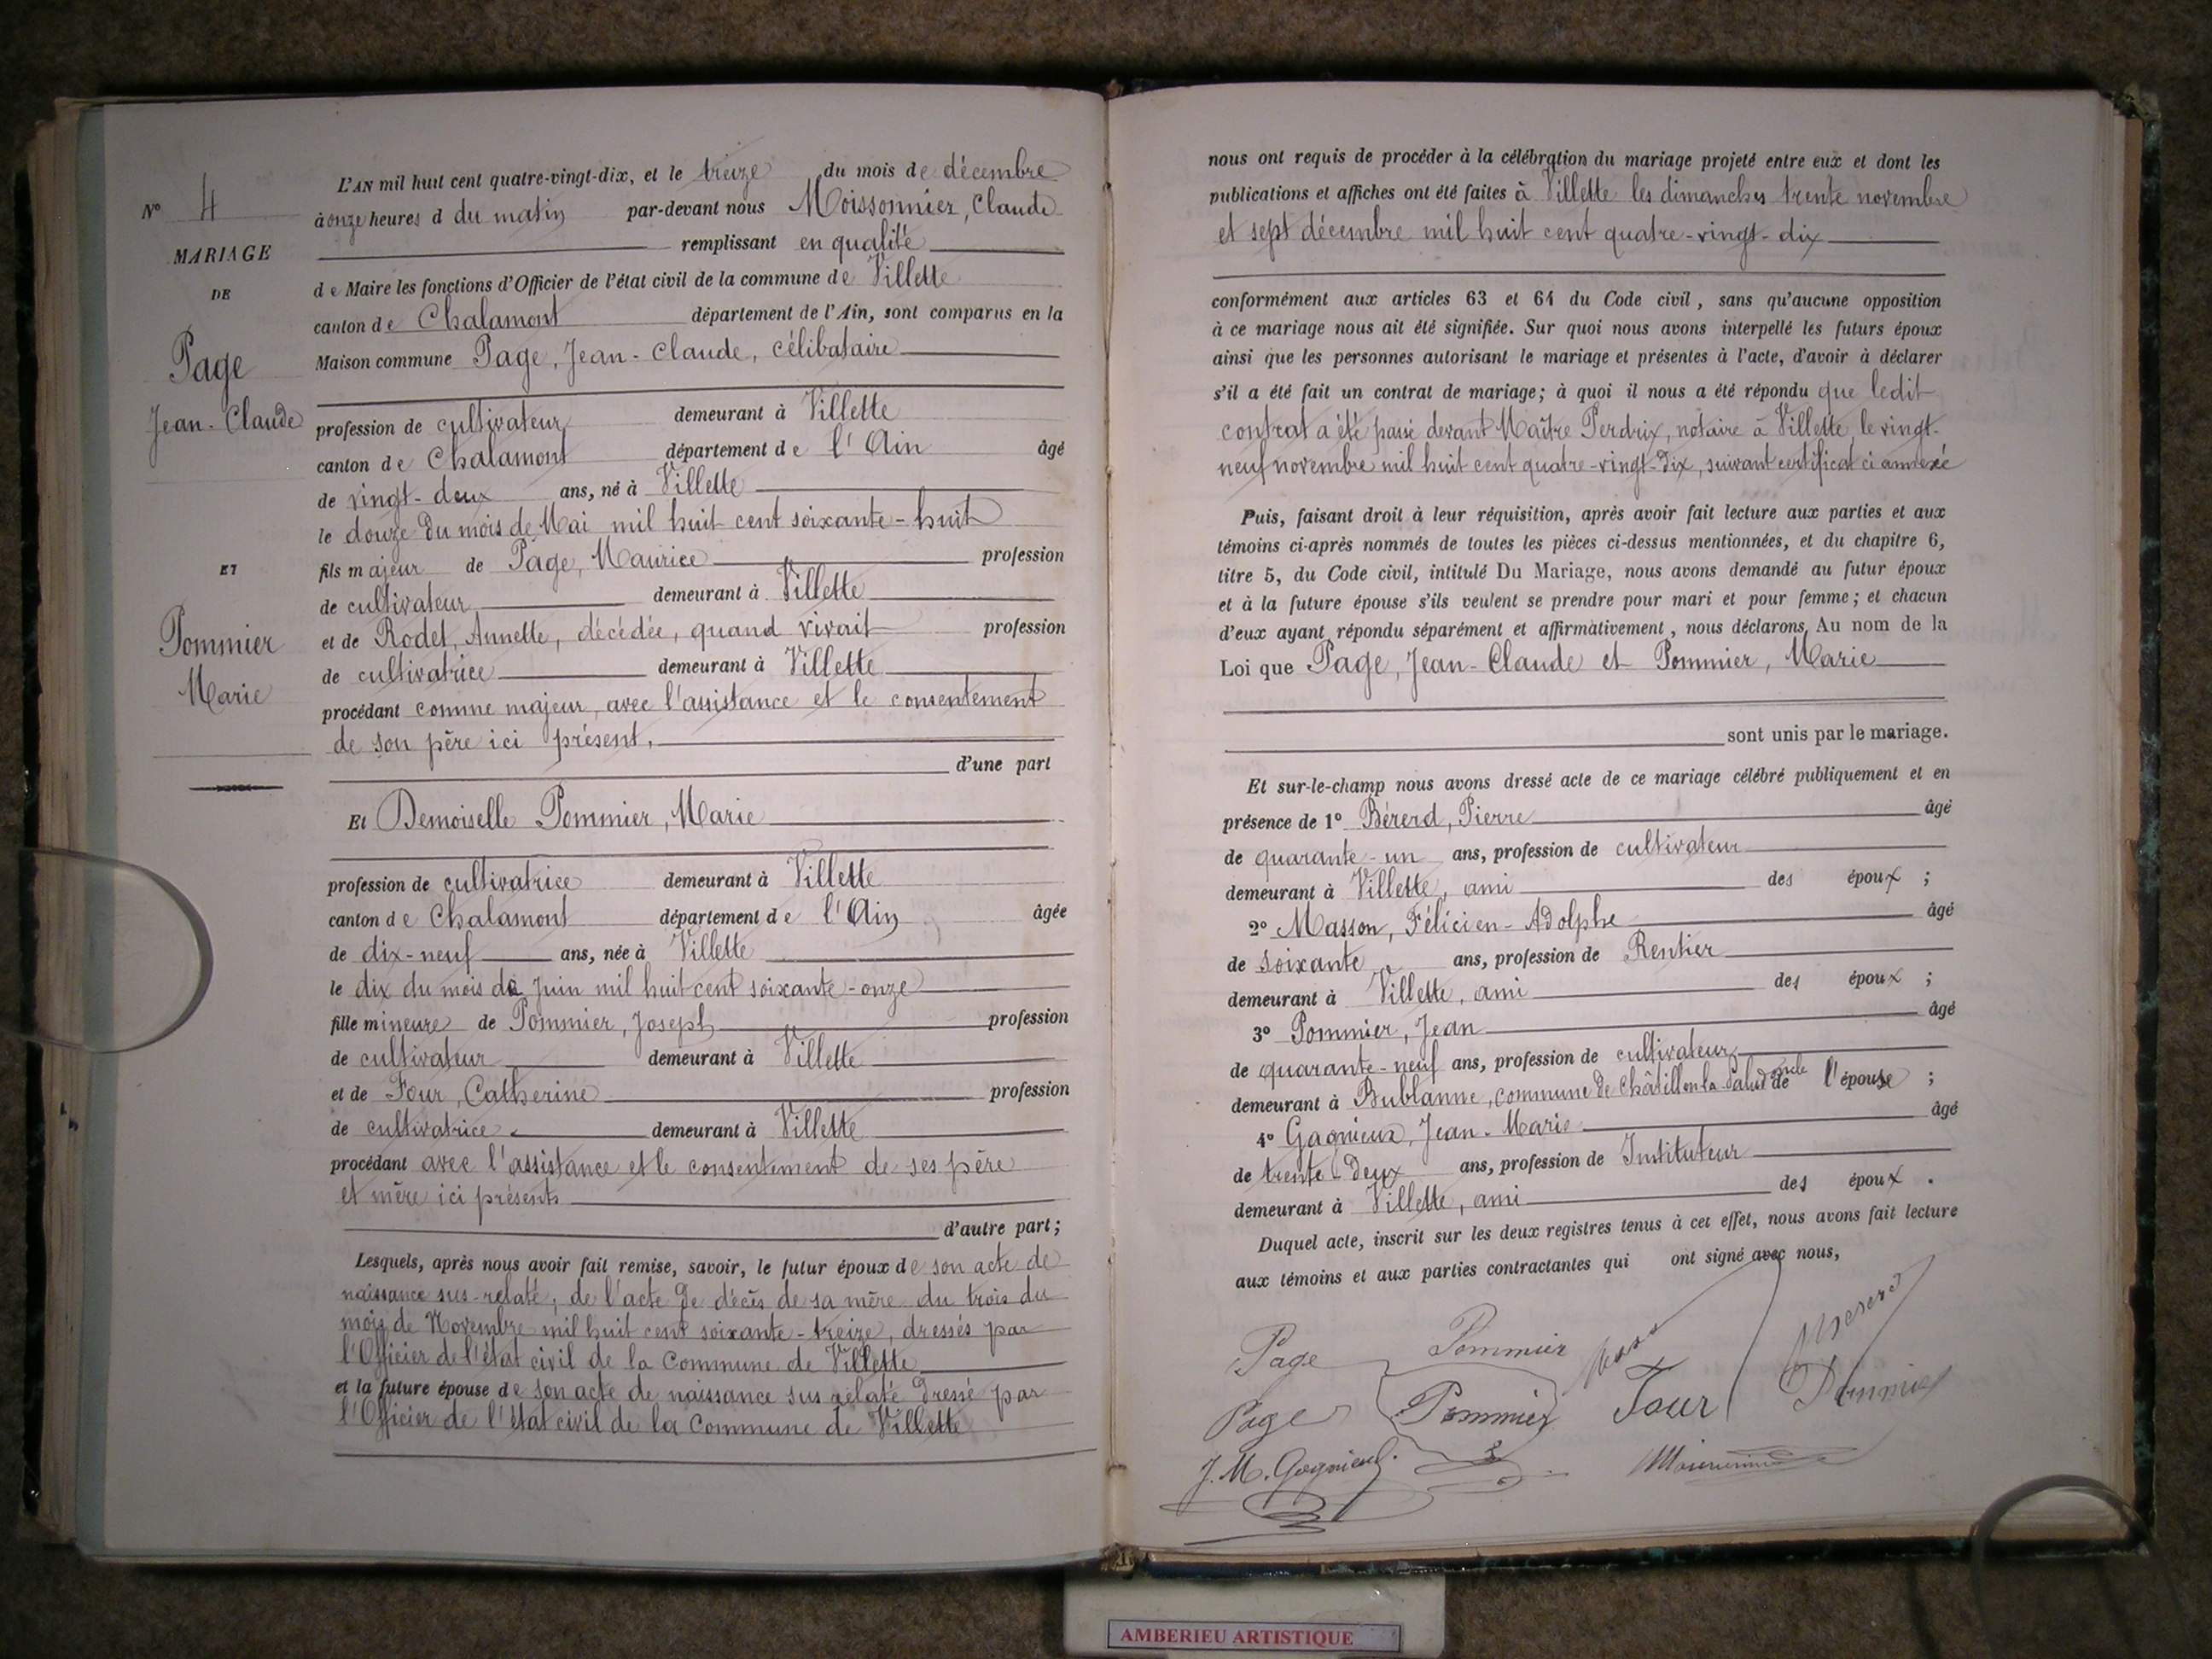 N° 4
MARIAGE
DE
Page
Jean-Claude
ET
Pommier
Marie
L'AN mil huit cent quatre-vingt-dix, et le treize du mois de décembre
à onze heures d du matin par-devant nous Moissonnier, Claude
remplissant en qualité
de Maire les fonctions d'Officier de l'état civil de la commune de Villette
canton de Chalamont département de l'Ain, sont comparus en la
Maison commune Page, Jean-Claude, célibataire
profession de cultivateur demeurant à Villette
canton de Chalamont département de l'Ain âgé
de vingt-deux ans, né à Villette
le douze du mois de Mai mil huit cent soixante-huit
fils majeur de Page, Maurice profession
de cultivateur demeurant à Villette
et de Rodet, Annette, décédée, quand vivait profession
de cultivatrice demeurant à Villette
procédant comme majeur, avec l'assistance et le consentement
de son père ici présent,
d'une part
Et Demoiselle Pommier, Marie
profession de cultivatrice demeurant à Villette
canton de Chalamont département de l'Ain âgée
de dix-neuf ans, née à Villette
le dix du mois de Juin mil huit cent soixante-onze
fille mineure de Pommier, Joseph profession
de cultivateur demeurant à Villette
et de Four, Catherine profession
de cultivatrice demeurant à Villette
procédant avec l'assistance et le consentement de ses père
et mère ici présents
d'autre part;
Lesquels, après nous avoir fait remise, savoir, le futur époux de son acte de
naissance sus-relaté, de l'acte de décès de sa mère du trois du
mois de Novembre mil huit cent soixante-treize, dressés par
l'Officier de l'état civil de la Commune de Villette
et la future épouse de son acte de naissance sus relaté dressé par
l'Officier de l'état civil de la Commune de Villette
nous ont requis de procéder à la célébration du mariage projeté entre eux et dont les
publications et affiches ont été faites à Villette les dimanches trente novembre
et sept décembre mil huit cent quatre-vingt-dix
conformément aux articles 63 et 64 du Code civil, sans qu'aucune opposition
à ce mariage nous ait été signifiée. Sur quoi nous avons interpellé les futurs époux
ainsi que les personnes autorisant le mariage et présentes à l'acte, d'avoir à déclarer
s'il a été fait un contrat de mariage; à quoi il nous a été répondu que ledit
contrat a été passé devant Maître Perdrix, notaire à Villette, le vingt-
neuf novembre mil huit cent quatre-vingt-dix, suivant certificat ci annexé
Puis, faisant droit à leur réquisition, après avoir fait lecture aux parties et aux
témoins ci-après nommés de toutes les pièces ci-dessus mentionnées, et du chapitre 6,
titre 5, du Code civil, intitulé Du Mariage, nous avons demandé au futur époux
et à la future épouse s'ils veulent se prendre pour mari et pour femme; et chacun
d'eux ayant répondu séparément et affirmativement, nous déclarons Au nom de la
Loi que Page, Jean-Claude et Pommier, Marie
sont unis par le mariage.
Et sur-le-champ nous avons dressé acte de ce mariage célébré publiquement et en
présence de 1° Bérerd, Pierre âgé
de quarante-un ans, profession de cultivateur
demeurant à Villette, ami des époux ;
2° Masson, Félicien-Adolphe âgé
de soixante ans, profession de Rentier
demeurant à Villette, ami des époux ;
3° Pommier, Jean âgé
de quarante-neuf ans, profession de cultivateur
demeurant à Bublanne, commune de Châtillon la Palud oncle de l'épouse ;
4° Gagnieux, Jean-Marie âgé
de trente-deux ans, profession de Instituteur
demeurant à Villette, ami des époux .
Duquel acte, inscrit sur les deux registres tenus à cet effet, nous avons fait lecture
aux témoins et aux parties contractantes qui ont signé avec nous,
Page
Pommier
Page
Pommier
Four
J. M. Gagnieux
AMBERIEU ARTISTIQUE